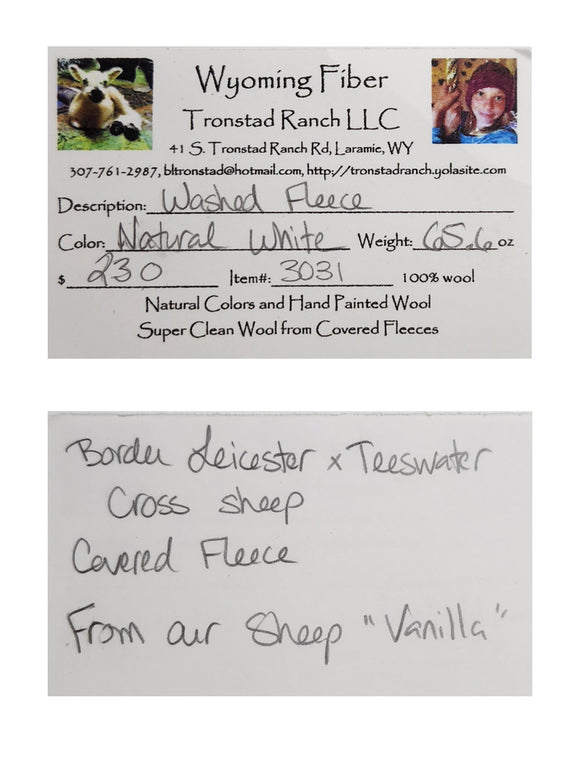 Wyoming Fiber
Tronstad Ranch LLC
41 S. Tronstad Ranch Rd, Laramie, WY
307-761-2987, bltronstad@hotmail.com, http://tronstadranch.yolasite.com
Description: Washed Fleece
Color: Natural White Weight: 65.6 oz
$ 230 Item#: 3031 100% wool
Natural Colors and Hand Painted Wool
Super Clean Wool from Covered Fleeces
Border Leicester x Teeswater
Cross sheep
Covered Fleece
From our Sheep "Vanilla"